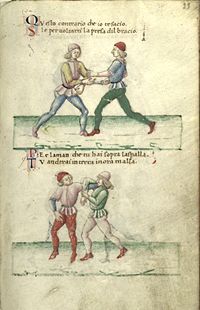 QVesto contrario che io te facio
Se per voltarti la presa dil bracio.
PEr la man che tu hai sopra la spalla.
TV andrai in terra in ora malla.